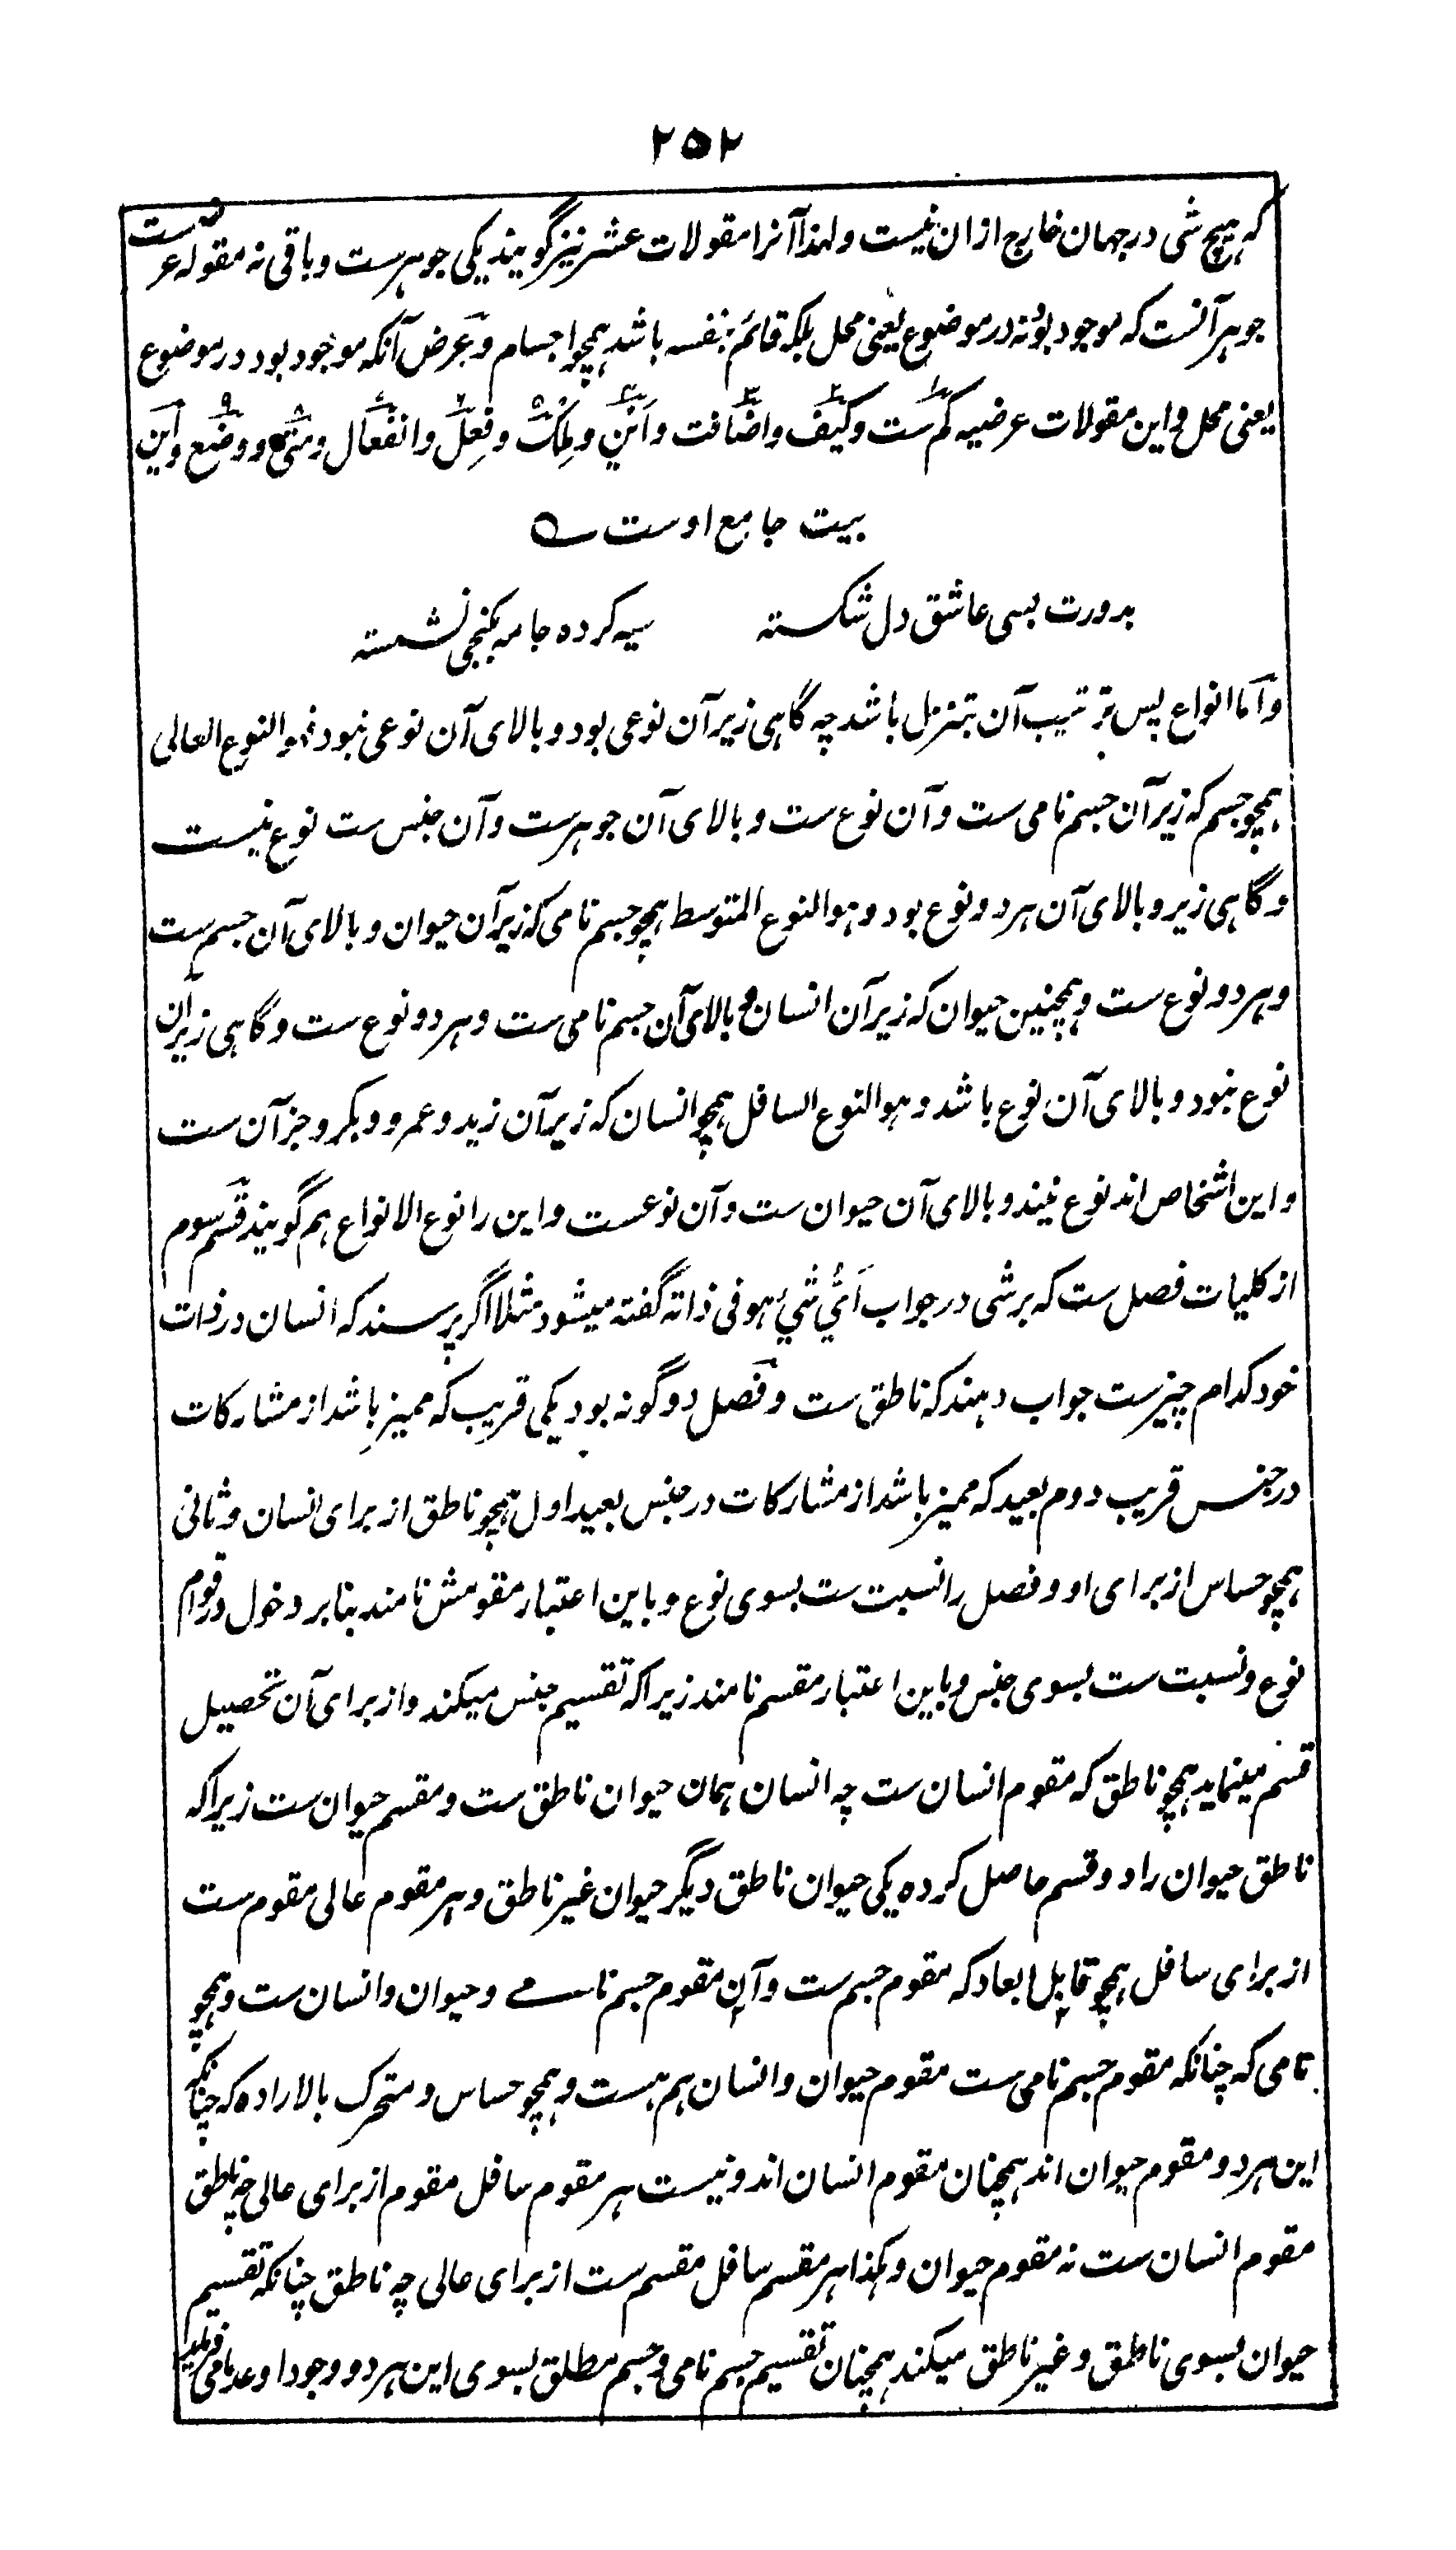 ۲۵۲
که هیچ شی در جهان خارج ازان نیست و لهذا آنرا مقولات عشر نیز گویند یکی جوهرست و باقی نه مقوله عرضست
جوهر آنست که موجود بود نه در موضوع یعنی محل بلکه قائم بنفسه باشد همچو اجسام و عرض آنکه موجود بود در موضوع
یعنی محل و این مقولات عرضیه کم ست و کیف و اضافت و اَین و مِلک و فِعل و انفعال و متی و وضع و این
بیت جامع اوست
بدورت بسی عاشق دل شکسته سیه کرده جامه بکنجی نشسته
و اما انواع پس ترتیب آن بتنزل باشد چه گاهی زیر آن نوعی بود و بالای آن نوعی نبود فهو النوع العالی
همچو جسم که زیر آن جسم نامی ست و آن نوع ست و بالای آن جوهرست و آن جنس ست نوع نیست
و گاهی زیر و بالای آن هر دو نوع بود و هو النوع المتوسط همچو جسم نامی که زیر آن حیوان و بالای آن جسم ست
و هر دو نوع ست و همچنین حیوان که زیر آن انسان و بالای آن جسم نامی ست و هر دو نوع ست و گاهی زیر آن
نوع نبود و بالای آن نوع باشد و هو النوع السافل همچو انسان که زیر آن زید و عمرو و بکر و جز آن ست
و این اشخاص اند نوع نیند و بالای آن حیوان ست و آن نوعست و این را نوع الانواع هم گویند قسم سوم
از کلیات فصل ست که بر شی در جواب اَیُّ شَیْءٍ هو فی ذاته گفته میشود مثلا اگر پرسند که انسان در ذات
خود کدام چیزست جواب دهند که ناطق ست و فصل دو گونه بود یکی قریب که ممیز باشد از مشارکات
در جنس قریب دوم بعید که ممیز باشد از مشارکات در جنس بعید اول همچو ناطق از برای انسان و ثانی
همچو حساس از برای او و فصل را نسبت ست بسوی نوع و باین اعتبار مقومش نامند بنا بر دخول در قوام
نوع و نسبت ست بسوی جنس و باین اعتبار مقسم نامند زیرا که تقسیم جنس میکند و از برای آن تحصیل
قسم مینماید همچو ناطق که مقوم انسان ست چه انسان همان حیوان ناطق ست و مقسم حیوان ست زیرا که
ناطق حیوان را دو قسم حاصل کرده یکی حیوان ناطق دیگر حیوان غیر ناطق و هر مقوم عالی مقوم ست
از برای سافل همچو قابل ابعاد که مقوم جسم ست و آن مقوم جسم نامے و حیوان و انسان ست و همچو
نامی که چنانکه مقوم جسم نامی ست مقوم حیوان و انسان هم هست و همچو حساس و متحرک بالاراده که چنانکه
این هر دو مقوم حیوان اند همچنان مقوم انسان اند و نیست هر مقوم سافل مقوم از برای عالی چه ناطق
مقوم انسان ست نه مقوم حیوان و هکذا هر مقسم سافل مقسم ست از برای عالی چه ناطق چنانکه تقسیم
حیوان بسوی ناطق و غیر ناطق میکند همچنان تقسیم جسم نامی و جسم مطلق بسوی این هر دو وجودا و عدما می